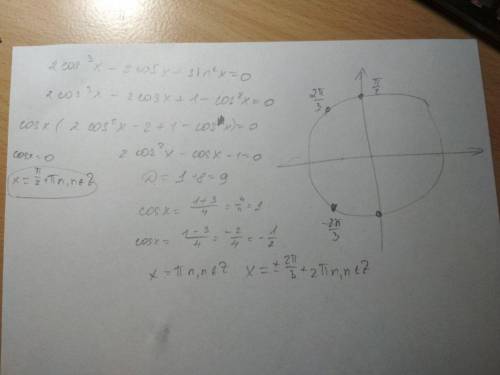 2cos³x - 2cosx - sin²x=0
2cos³x - 2cosx+1-cos²x=0
cosx( 2cos²x-2+1-cosx)=0
cosx=0 2cos²x-cosx-1=0
x=π/2+πn,n∈Z D=1+8=9
cosx= (1+3)/4 = 4/4 =1
cosx= (1-3)/4 = -2/4 = -1/2
x=πn,n∈Z x=±2π/3+2πn,n∈Z
2π/3
-2π/3